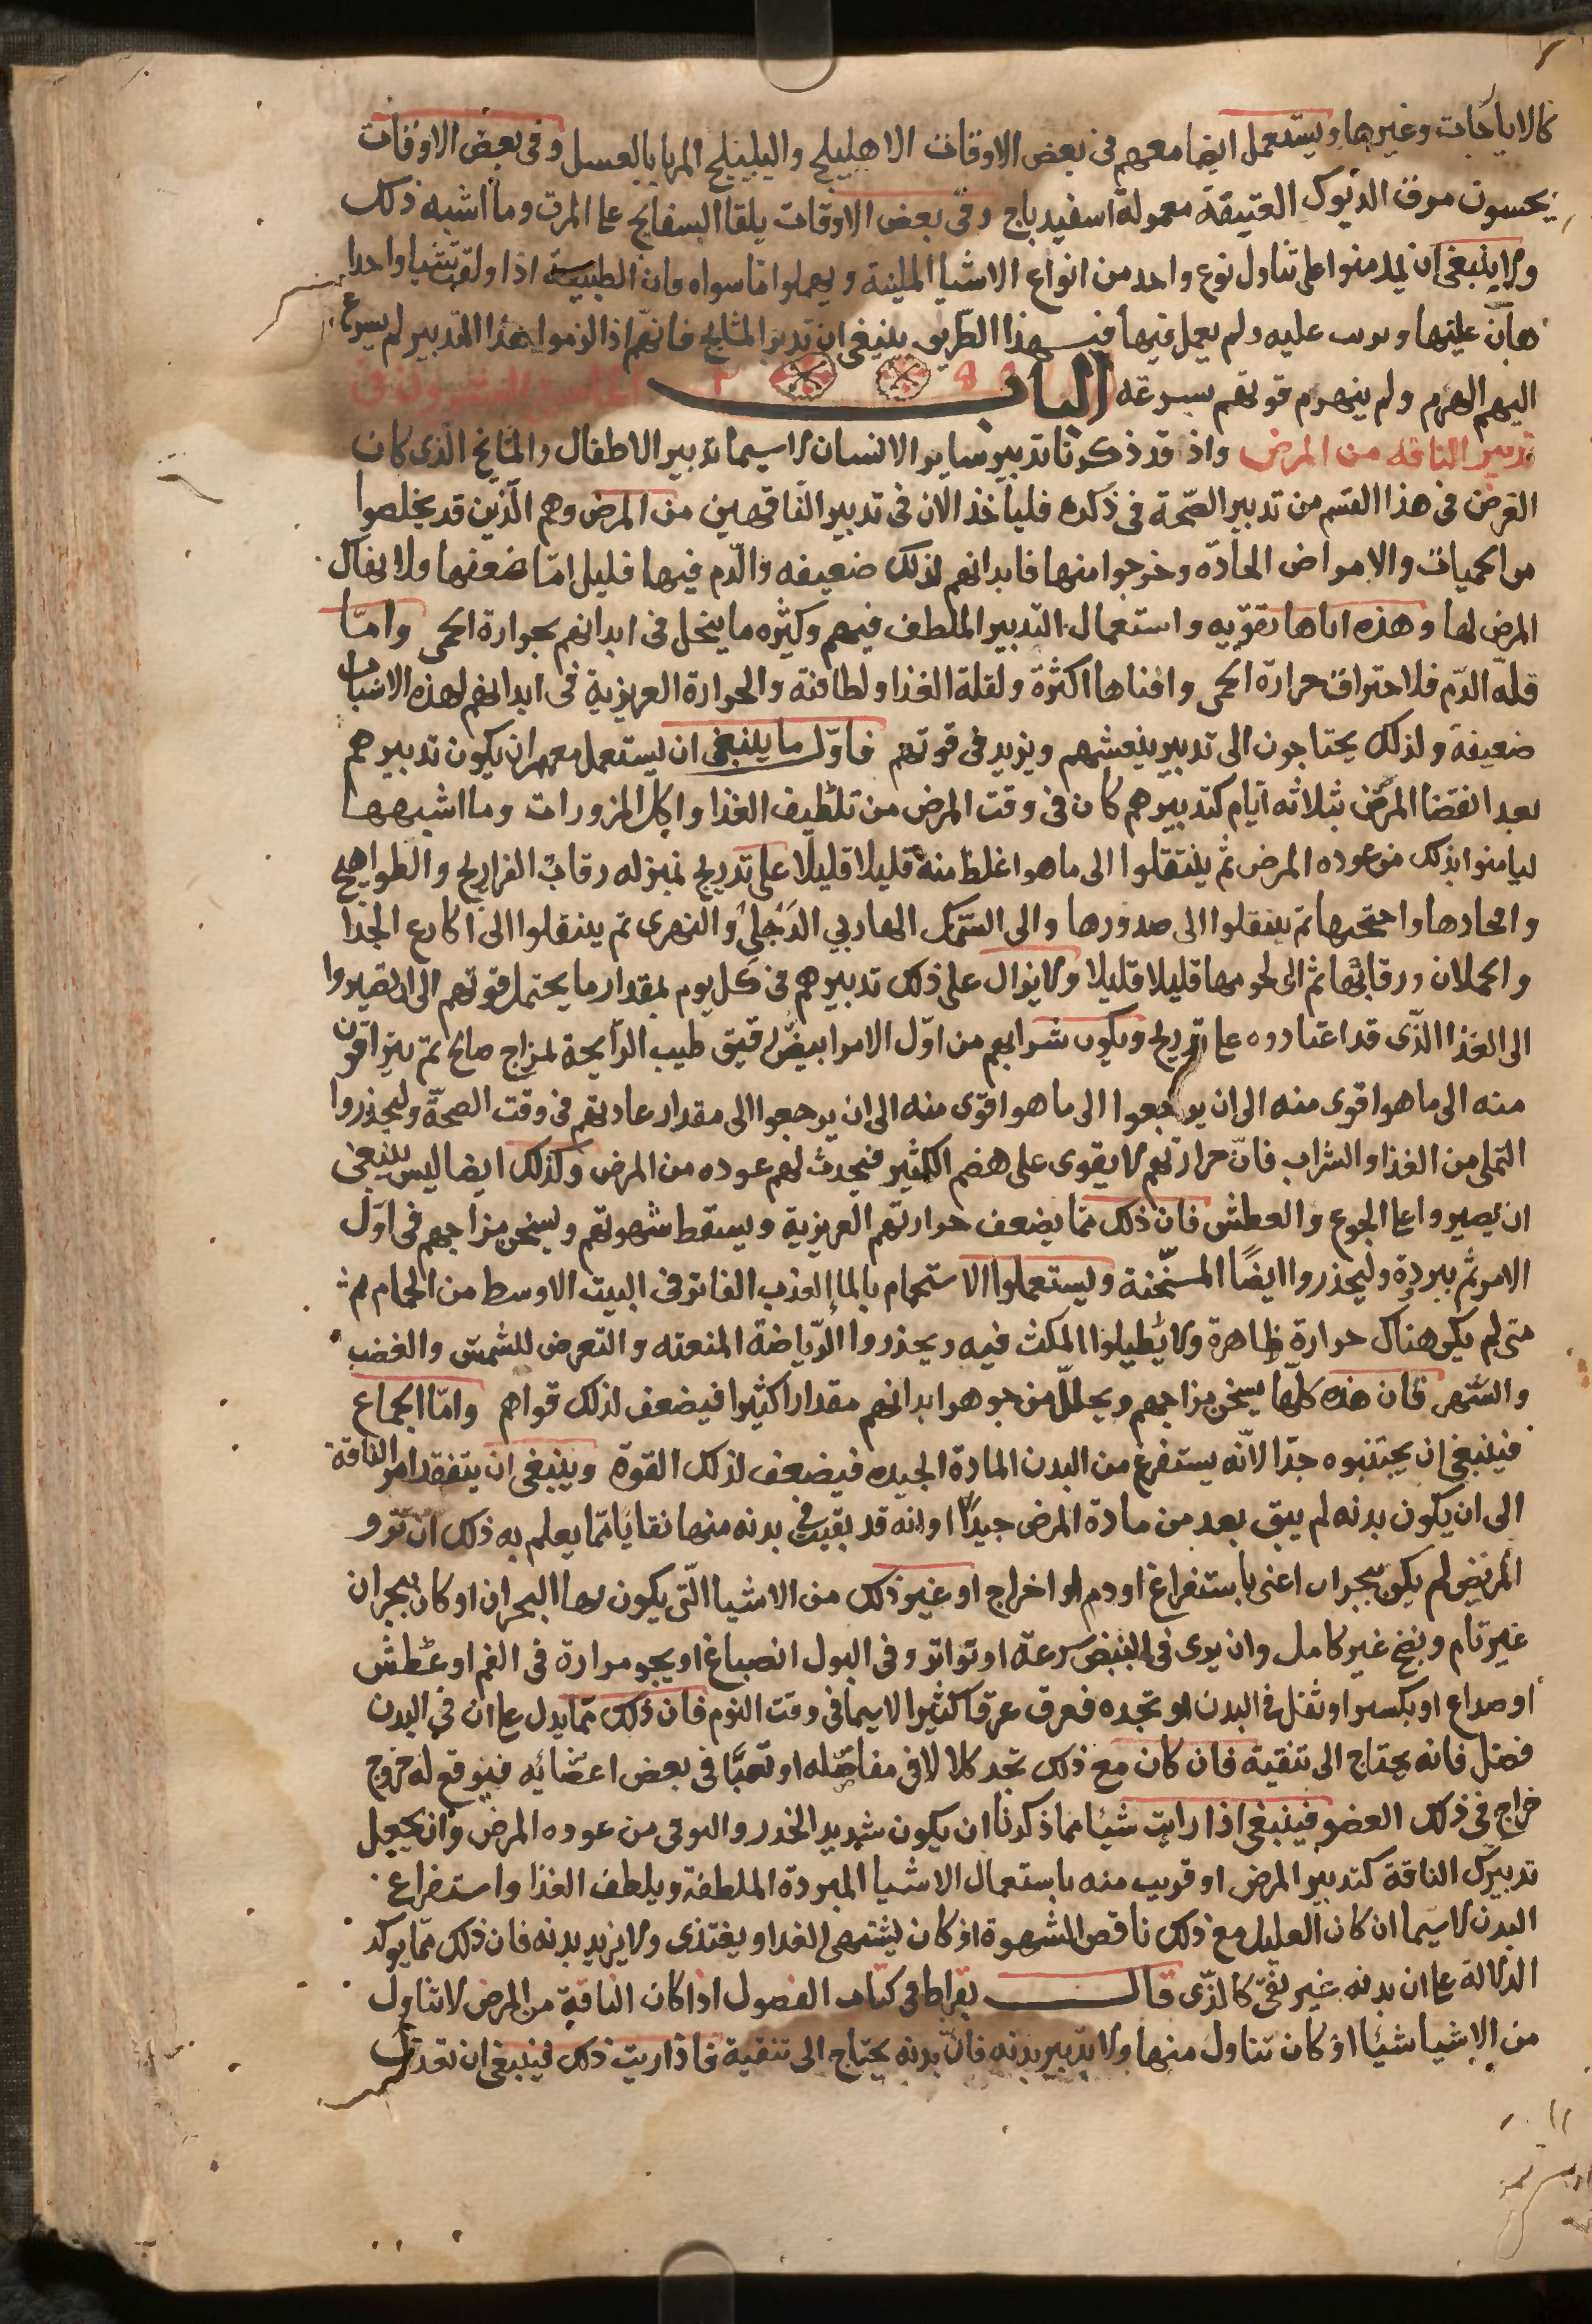 كالايارجات وغيرها ويستعمل ايضا معهم فى بعض الاوقات الاهليلج والبليلج المربا بالعسل وفى بعض الاوقات
يحسون مرق الديوك العتيقة معمولة اسفيدباج وفى بعض الاوقات يلقا البسفايج على المرق وما اشبه ذلك
ولا ينبغى ان يدمنوا على تناول نوع واحد من انواع الاشيا الملينة ويهملوا ما سواه فان الطبيعة اذا ولفت شيا واحدا
هان عليها ولم يعمل فيها فبهذا الطريق ينبغى ان تدبر المشايخ فانهم اذا لزموا هذا التدبير لم يسرع
اليهم الهرم ولم ينهزم قوتهم بسرعه الباب الخامس والعشرون فى
تدبير الناقه من المرض واذ قد ذكرنا تدبير ساير الانسان لا سيما تدبير الاطفال والمشايخ الذى كان
الغرض فى هذا القسم من تدبير الصحة فى ذكره فلياخذ الان فى تدبير الناقهين من المرض وهم الذين قد تخلصوا
من الحميات والامراض الحادّه وخرجوا منها فابدانهم لذلك ضعيفه والدم فيها قليل امّا ضعفها فلانهاك
المرض لها وهذه اياها بقوّيه واستعمال التدبير الملطف فيهم وكثره ما ينحل فى ابدانهم بحرارة الحمى وامّا
قلّه الدّم فلاحتراق حرارة الحمى وافناها اكثره ولقلة الغذا ولطافته والحرارة الغريزية فى ابدانهم لهذه الاسباب
ضعيفه ولذلك يحتاجون الى تدبير ينعشهم ويزيد فى قوتهم فاوّل ما ينبغى ان يستعمل معهم ان يكون تدبيرهم
بعد انقضا المرض بثلاثه ايّام كتدبيرهم كان فى وقت المرض من تلطيف الغذا واكل المزورات وما اشبهها
ليامنوا بذلك من عوده المرض ثم ينتقلوا الى ما هو اغلظ منه قليلا قليلا على تدريج بمنزله رقاب الفراريج والطواهيج
وافخادها واجنحتها ثم ينتقلوا الى صدورها والى السّمك الهاربي الدَجلي والنهرى ثم ينتقلوا الى اكارع الجدا
والحملان ورقابها ثم الى لحومها قليلا قليلا ولا يزال على ذلك تدبيرهم فى كل يوم بمقدار ما يحتمل قوتهم الى ان يصيروا
الى الغذا الذّى قد اعتادوه على تدريج ويكون شرابهم من اوّل الامر ابيض رقيق طيب الرّايحة لمزاج صالح ثم يتراقون
منه الى ما هو اقوى منه الى ان يرجعوا الى ما هو اقوى منه الى ان يرجعوا الى مقدار عادتهم فى وقت الصحّة وليحذروا
التملى من الغذا والشراب فانّ حرارتهم لا يقوى على هضم الكثير فيحدث لهم عوده من المرض وكذلك ايضا ليس ينبغى
ان يصبروا على الجوع والعطش فان ذلك ممّا يضعف حرارتهم الغريزية ويسقط شهوتهم ويسخن مزاجهم فى اوّل
الامر ثم يبردة وليحذروا ايضًا المسخّنة ويستعملوا الاستحمام بالما العذب الفاتر فى البيت الاوسط من الحمام ثم
متى لم يكن هناك حرارة ظاهرة ولا يطيلوا المكث فيه ويحذروا الرّياضة المتعبة والتعرض للشمس والغضب
والسّهر فان هذه كلّها يسخن مزاجهم ويحلل من جوهر ابدانهم مقدارا كثيرا فيضعف لذلك قواهم وامّا الجماع
فينبغى ان يجتنبوه جدّا لانّه يستفرغ من البدن المادة الجيده فيضعف لذلك القوة وينبغى ان يتفقد امر الناقة
الى ان يكون بدنه لم يبق بعد من مادة المرض جيدًا او انه قد بقيت فى بدنه منها بقايا ممّا يعلم به ذلك ان ترو
المريض لم يكن ببحران اعنى باستفراغ او دم او اخراج او غير ذلك من الاشيا الّتى يكون بها البحران او كان بحران
غير تام ونضج غير كامل وان يرى فى النبض سرعة او تواتر وفى البول انصباغ او يجد مرارة فى الفم او عطش
او صداع او بكسر او ثقل فى البدن او تجده فعرق عرقا كثيرا لا سيما فى وقت النوم فان ذلك ممّا يدل على ان فى البدن
فضل فانه يحتاج الى تنقية فان كان مع ذلك تجد كلالا فى مفاصله او تعبًا فى بعض اعضائه فيتوقع له خروج
خراج فى ذلك العضو فينبغى اذا رايت شيئا مما ذكرنا ان يكون شديد الحذر والتوقى من عوده المرض وان يجعل
تدبيرك الناقة كتدبير المرض او قريب منه باستعمال الاشيا المبردة الملطفة ويلطف الغذا واستفراغ
البدن لا سيّما ان كان العليل مع ذلك ناقص الشهوة اذ كان يشتهى الغذا ويغتذى ولا يزيد بدنه فان ذلك ممّا يوكد
الدلالة على ان بدنه غير نقىّ كالذّى قال بقراط فى كتاب الفصول اذا كان الناقة من المرض لا تناول
من الاشيا شيئا اذ كان تناول منها ولا تدبير بدنه فانّ بدنه يحتاج الى تنقية فاذا ريت ذلك فينبغى ان